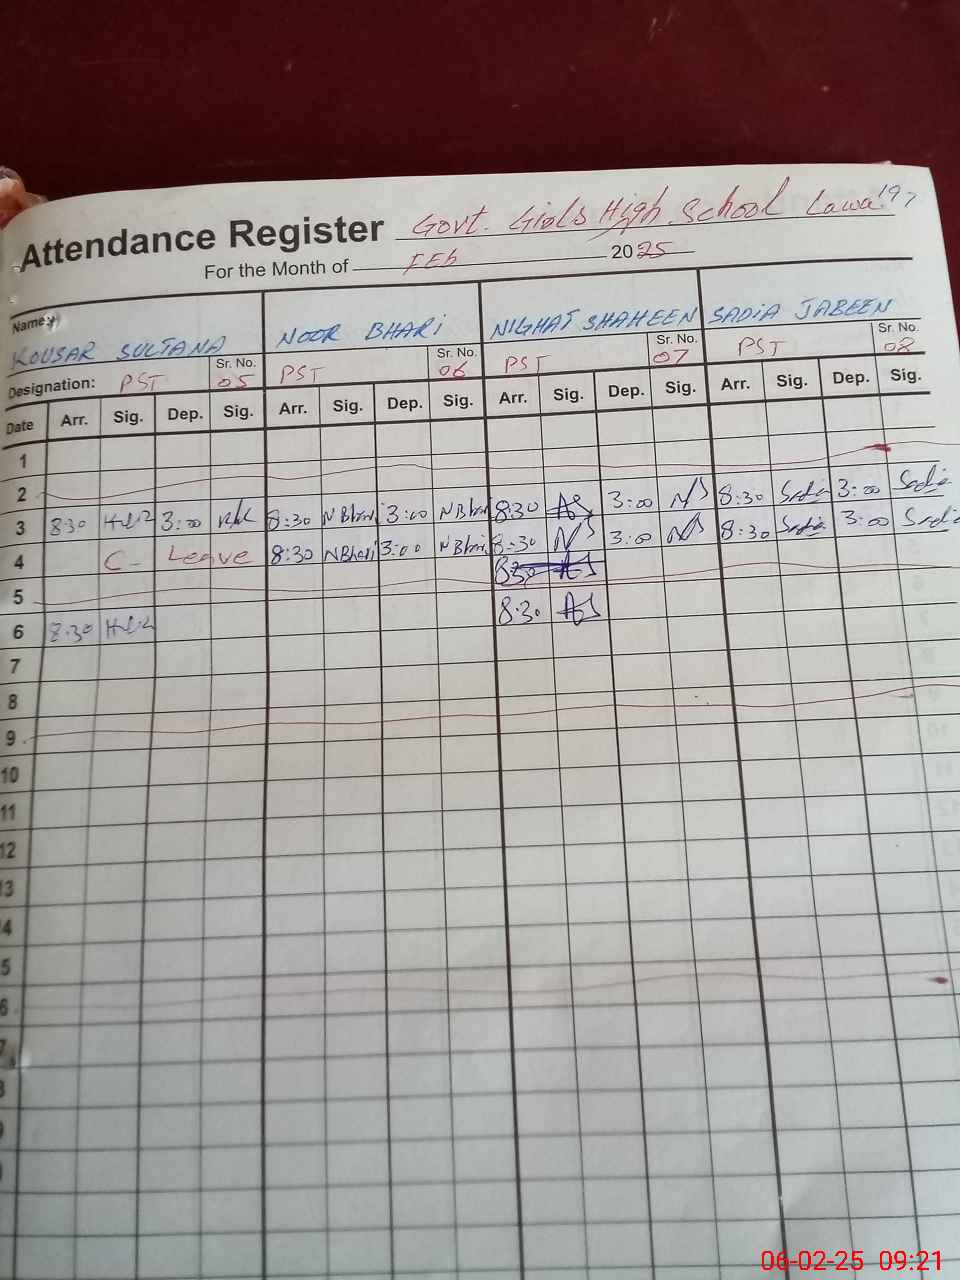 197
Attendance Register Govt. Girls High School Lawa
For the Month of Feb 2025
Name: KOUSAR SULTANA NOOR BHARI NIGHAT SHAHEEN SADIA JABEEN
Designation: PST Sr. No. 05 PST Sr. No. 06 PST Sr. No. 07 PST Sr. No. 08
Date Arr. Sig. Dep. Sig. Arr. Sig. Dep. Sig. Arr. Sig. Dep. Sig. Arr. Sig. Dep. Sig.
1
2
3 8:30 3:00 8:30 NBhari 3:00 NBhari 8:30 3:00 NS 8:30 Sadia 3:00 Sadia
4 C- Leave 8:30 NBhari 3:00 NBhari 8:30 NS 3:00 NS 8:30 Sadia 3:00 Sadia
5 8:30
6 8:30 8:30
7
8
9
10
11
12
13
4
5
6
7
8
9
06-02-25 09:21